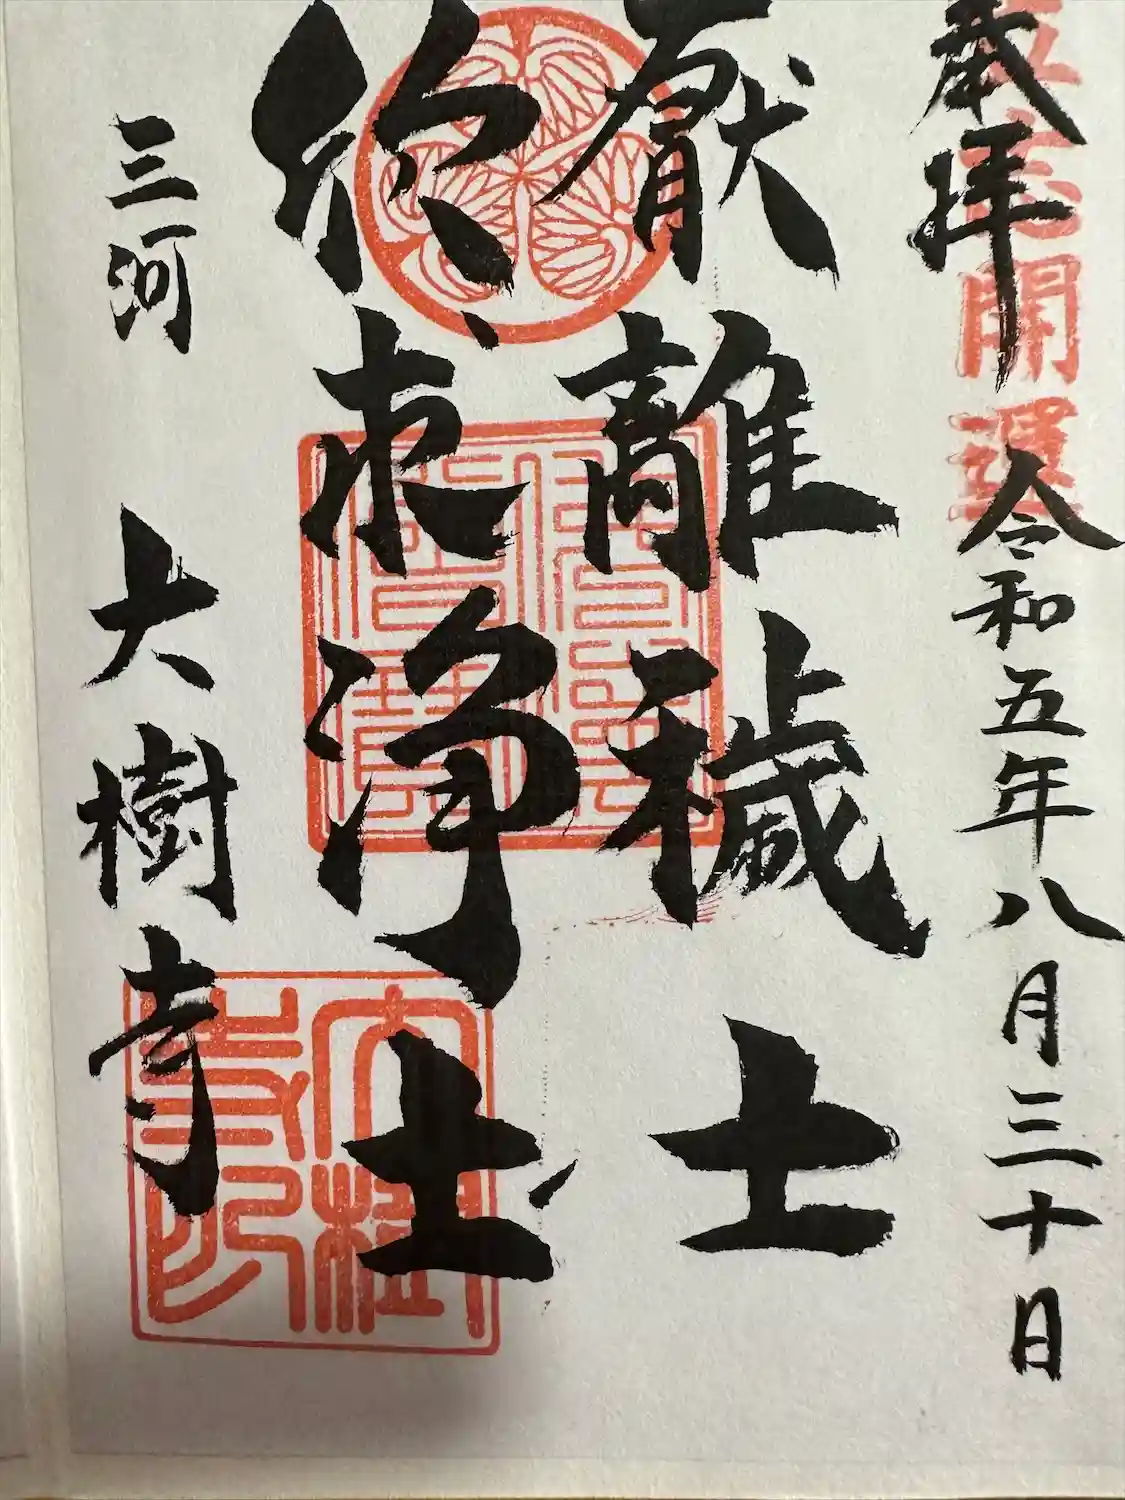 奉拝 令和五年八月三十日
厭離穢土
欣求浄土
三河 大樹寺
開運